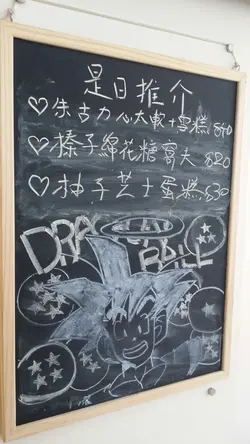 是日推介
♡朱古力心太軟+雪糕 $40
♡榛子綿花糖窩夫 $20
♡柚子芝士蛋糕 $30
DRAGON
BALL